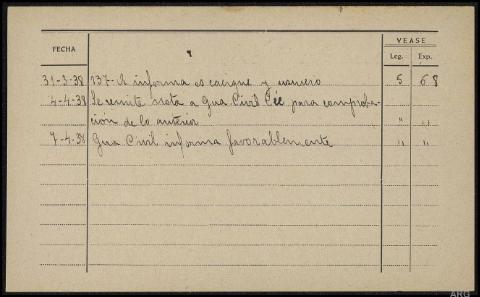 FECHA
VEASE
Leg. Exp.
31-3-38 137-A informa es cacique y usurero 5 68
4-4-38 Se remite nota a Gua Civil Cée para comproba-
ción de lo anterior " "
7-4-38 Gua Civil informa favorablemente " "
ARG